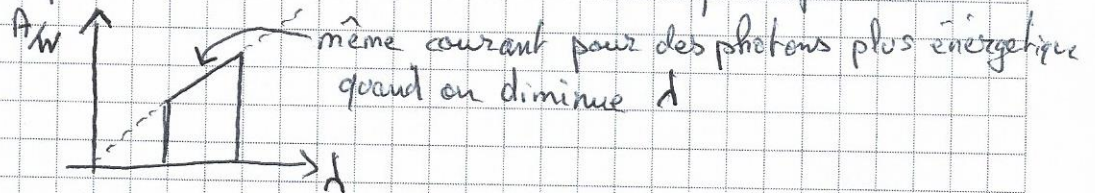 A/W
même courant pour des photons plus énérgetique
quand on diminue λ
λ